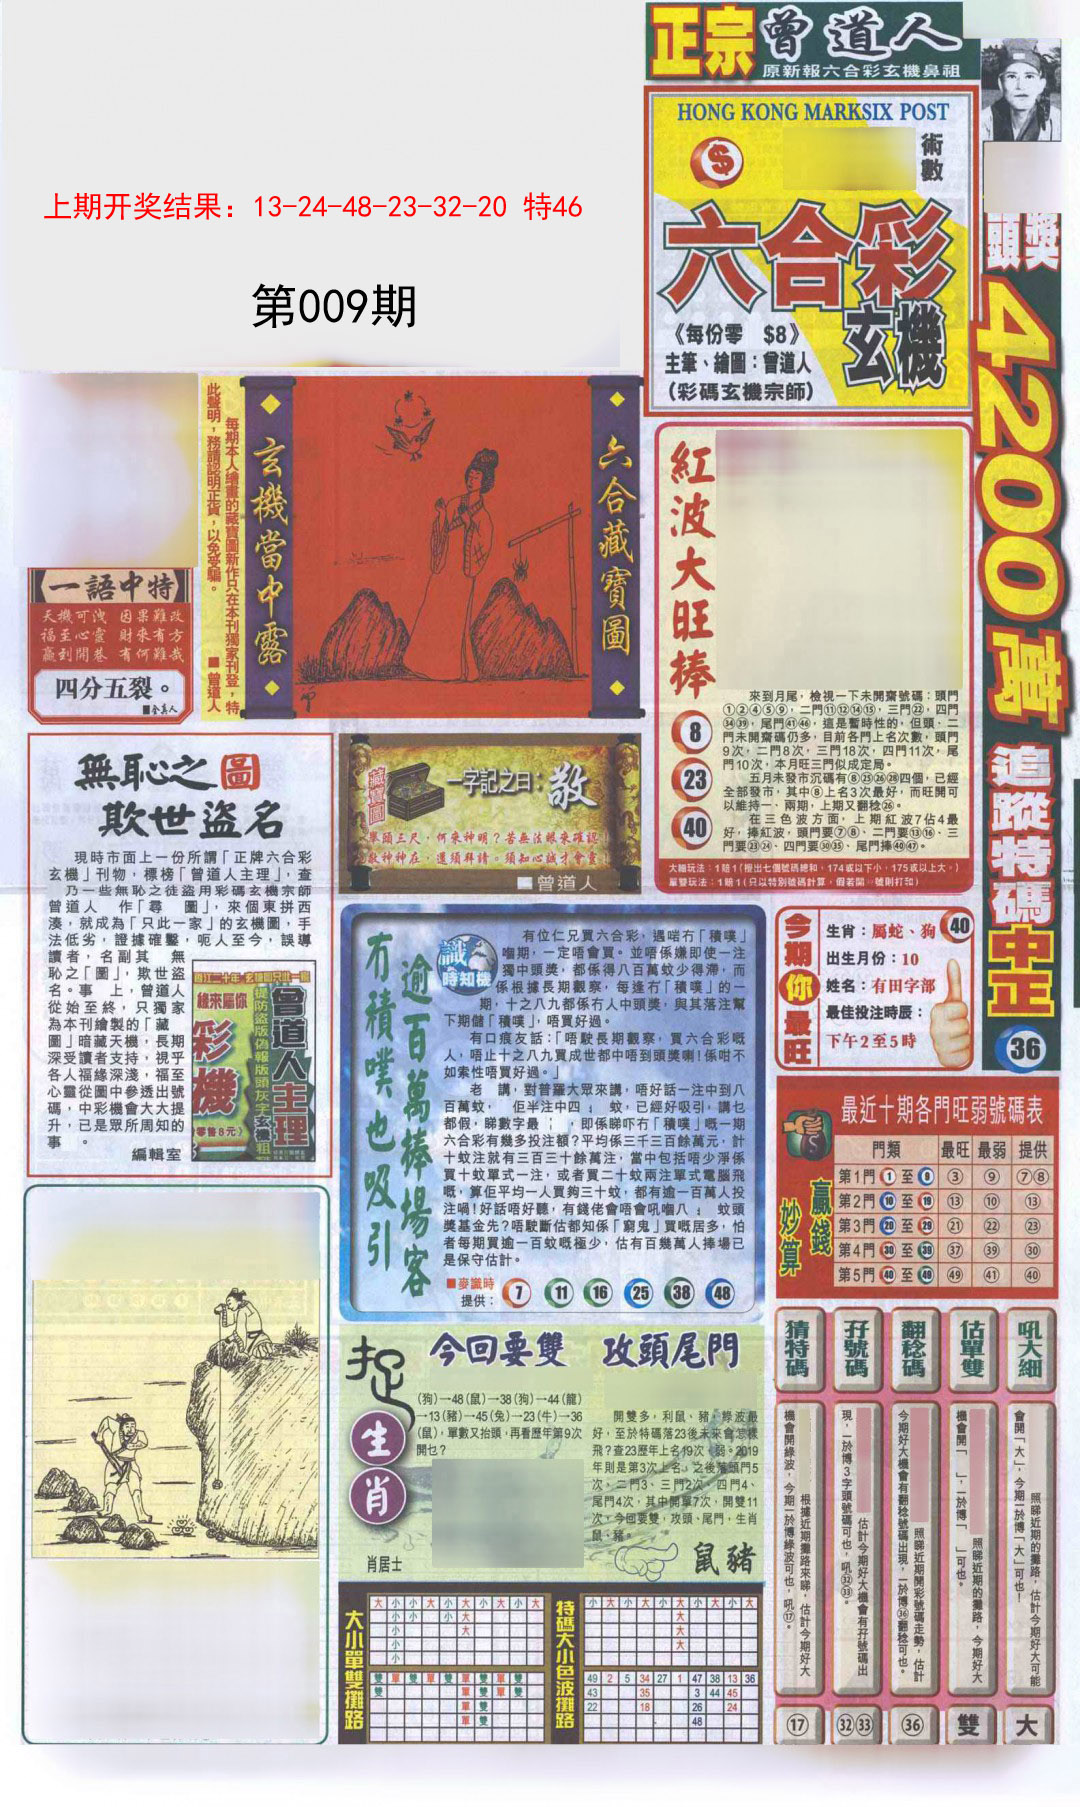 正宗曾道人
原新報六合彩玄機鼻祖
HONG KONG MARKSIX POST
術數
六合彩
玄機
《每份零 $8》
主筆、繪圖：曾道人
（彩碼玄機宗師）
頭獎
4200萬
追蹤特碼中正
36
上期开奖结果：13-24-48-23-32-20 特46
第009期
每期本人繪畫的藏寶圖新作只在本刊獨家刊登，特
此聲明，務請認明正貨，以免受騙。
■曾道人
玄機當中露
六合藏寶圖
一語中特
天機可洩 因果難改
福至心靈 財來有方
贏到開巷 有何難哉
四分五裂。
■全真人
紅波大旺棒
8
23
40
來到月尾，檢視一下未開齋號碼：頭門
①②④⑤⑨，二門⑪⑫⑭⑮，三門㉒，四門
㉞㊴，尾門㊶㊻，這是暫時性的，但頭、二
門未開齋碼仍多，目前各門上名次數，頭門
9次，二門8次，三門18次，四門11次，尾
門10次，本月旺三門似成定局。
五月未發市沉碼有⑧㉕㉖㉘四個，已經
全部發市，其中⑧上名3次最好，而旺開可
以維持一、兩期，上期又翻稔㉖。
在三色波方面，上期紅波7佔4最
好，捧紅波，頭門要⑦⑧、二門要⑬⑯、三
門要㉓㉔、四門要㉚㉟、尾門捧㊵㊼。
大細玩法：1賠1（攪出七個號碼總和，174或以下小，175或以上大。）
單雙玩法：1賠1（只以特別號碼計算，假若開 號則打和）
無恥之圖
欺世盜名
現時市面上一份所謂「正牌六合彩
玄機」刊物，標榜「曾道人主理」，查
乃一些無恥之徒盜用彩碼玄機宗師
曾道人 作「尋 圖」，來個東拼西
湊，就成為「只此一家」的玄機圖，手
法低劣，證據確鑿，呃人至今，誤導
讀者，名副其 無
恥之「圖」，欺世盜
名。事 上，曾道人
從始至終，只獨家
為本刊繪製的「藏
圖」暗藏天機，長期
深受讀者支持，視乎
各人福緣深淺，福至
心靈從圖中參透出號
碼，中彩機會大大提
升，已是眾所周知的
事 。
編輯室
曾道人主理
提防盜版偽報版頭灰字玄機粗
緣來屬你
彩
機
零售8元
藏寶圖
一字記之曰：敬
舉頭三尺，何來神明？苦無法眼來確認
敬神神在，還須拜請。須知心誠才會靈！
曾道人
識時知機
逾百萬捧場客
冇積噗也吸引
有位仁兄買六合彩，遇啱冇「積噗」
嗰期，一定唔會買。並唔係嫌即使一注
獨中頭獎，都係得八百萬蚊少得滯，而
係根據長期觀察，每逢冇「積噗」的一
期，十之八九都係冇人中頭獎，與其落注幫
下期儲「積噗」，唔買好過。
有口痕友話：「唔駛長期觀察，買六合彩嘅
人，唔止十之八九買成世都中唔到頭獎喇！係咁不
如索性唔買好過。」
老 講，對普羅大眾來講，唔好話一注中到八
百萬蚊， 佢半注中四 蚊，已經好吸引，講乜
都假，睇數字最 ，即係睇吓冇「積噗」嘅一期
六合彩有幾多投注額？平均係三千三百餘萬元，計
十蚊注就有三百三十餘萬注，當中包括唔少淨係
買十蚊單式一注，或者買二十蚊兩注單式電腦飛
嘅，算佢平均一人買夠三十蚊，都有逾一百萬人投
注喎！好話唔好聽，有錢佬會唔會吼嗰八 蚊頭
獎基金先？唔駛斷估都知係「窮鬼」買嘅居多，怕
者每期買逾一百蚊嘅極少，估有百幾萬人捧場已
是保守估計。
■麥識時
提供：
7 11 16 25 38 48
今期你最旺
生肖：屬蛇、狗
40
出生月份：10
姓名：有田字部
最佳投注時辰：
下午2至5時
最近十期各門旺弱號碼表
贏錢妙算
門類 最旺 最弱 提供
第1門 1 至 9 ③ ⑨ ⑦⑧
第2門 10 至 19 ⑬ ⑩ ⑬
第3門 20 至 29 ㉑ ㉒ ㉓
第4門 30 至 39 ㊲ ㊴ ㉚
第5門 40 至 49 ㊾ ㊶ ㊵
捉生肖
今回要雙 攻頭尾門
(狗)→48(鼠)→38(狗)→44(龍)
→13(豬)→45(兔)→23(牛)→36
(鼠)，單數又抬頭，再看歷年第9次
開乜？
肖居士
開雙多，利鼠、豬，綠波最
好，至於特碼落23後未來會怎樣
飛？查23歷年上名19次 弱。2019
年則是第3次上名，之後落頭門5
次、二門3、三門2次、四門4、
尾門4次，其中開單7次，開雙11
次，今回要雙，攻頭、尾門，生肖
鼠、豬。
鼠豬
大小單雙攤路
大小小大小大小大小大
小小 小 大
小
小
小
雙單雙單雙單雙單雙
雙 單雙單雙
單雙
單雙
特碼大小色波攤路
小小小大小大小大小大
大
大
大
49 2 5 34 27 1 47 38 13 36
43 35 3 44 45
22 18 26 24
48
吼大細
照睇近期的攤路，估計今期好大可能
會開「大」，今期一於博「大」可也！
大
估單雙
照睇近期的攤路，今期好大
機會開「 」，一於博「 」可也。
雙
翻稔碼
照睇近期開彩號碼走勢，估計
今期好大機會有翻稔號碼出現，一於博㊱翻稔可也。
㊱
孖號碼
估計今期好大機會有孖號碼出
現，一於博3字頭號碼可也，吼㉜㉝。
㉜㉝
猜特碼
根據近期攤路來睇，估計今期好大
機會開綠波，今期一於博綠波可也，吼⑰。
⑰